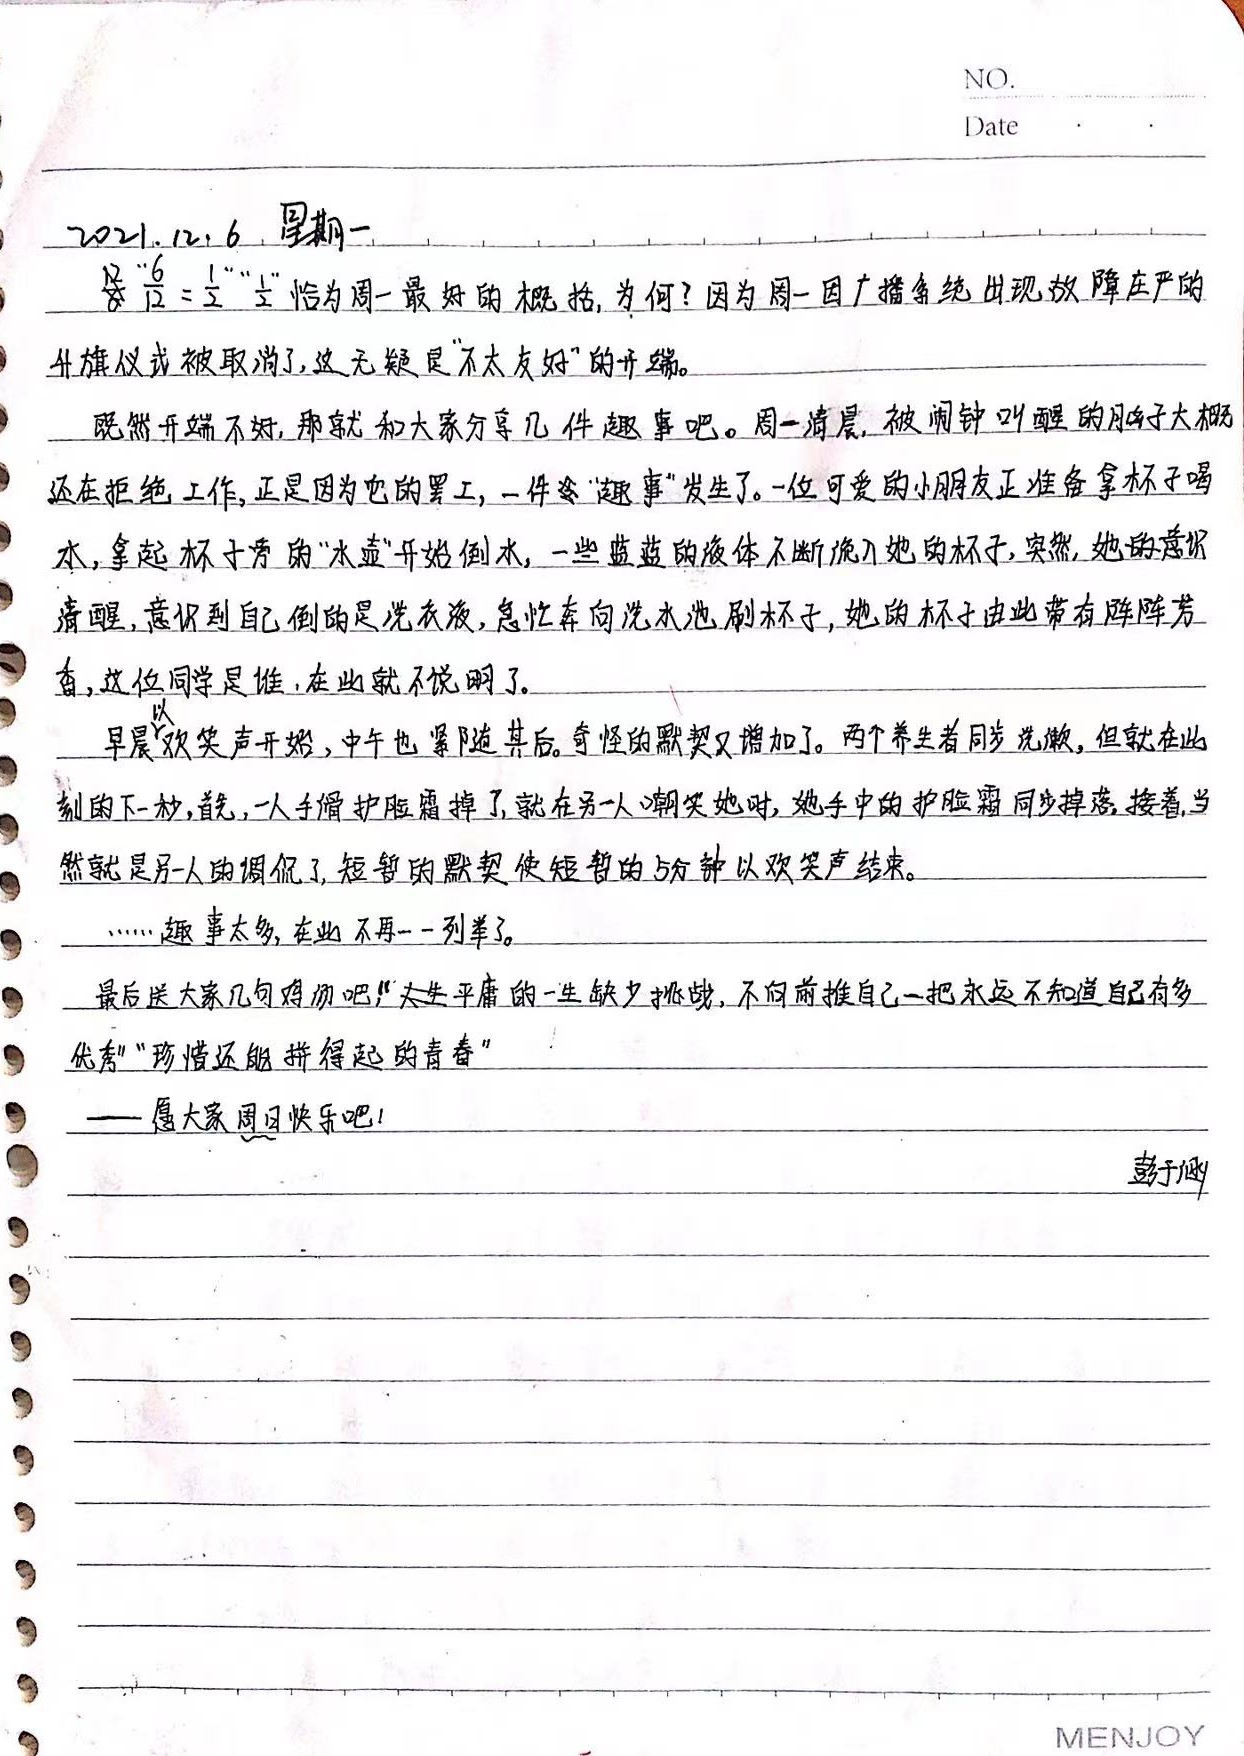 NO.
Date
2021.12.6 星期一
"6/12=1/2" "1/2"恰为周一最好的概括,为何?因为周一因广播系统出现故障庄严的
升旗仪式被取消了,这无疑是"不太友好"的开端。
既然开端不好,那就和大家分享几件趣事吧。周一清晨,被闹钟叫醒的脑子大概
还在拒绝工作,正是因为它的罢工,一件"趣事"发生了。一位可爱的小朋友正准备拿杯子喝
水,拿起杯子旁的"水壶"开始倒水,一些蓝蓝的液体不断流入她的杯子,突然,她的意识
清醒,意识到自己倒的是洗衣液,急忙奔向洗水池刷杯子,她的杯子由此带有阵阵芳
香,这位同学是谁,在此就不说明了。
早晨以欢笑声开始,中午也紧随其后。奇怪的默契又增加了。两个养生者同步洗漱,但就在此
刻的下一秒,首先,一人手滑护脸霜掉了,就在另一人嘲笑她时,她手中的护脸霜同步掉落。接着,当
然就是另一人的调侃了,短暂的默契使短暂的5分钟以欢笑声结束。
……趣事太多,在此不再一一列举了。
最后送大家几句鸡汤吧!"太平庸的一生缺少挑战,不向前推自己一把永远不知道自己有多
优秀""珍惜还能拼得起的青春"
——愿大家周日快乐吧!
彭于涵
MENJOY